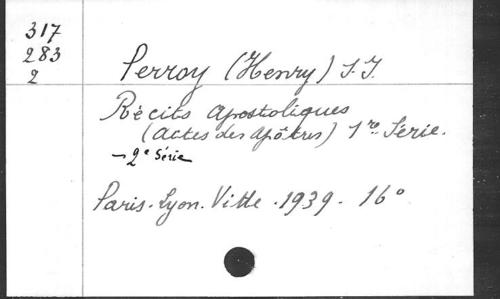 317
283
2
Perroy (Henry) S.J.
Récits apostoliques
(actes des apôtres) 1re Série.
- 2e Série
Paris. Lyon. Vitte. 1939. 16°